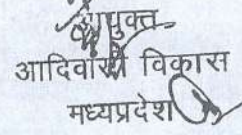 आयुक्त
आदिवासी विकास
मध्यप्रदेश